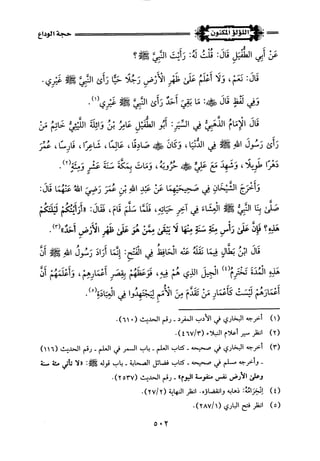 اللؤلؤ المكنون
حجة الوداع
عَنْ أَبِي الطُّفَيْلِ قَالَ: قُلْتُ لَهُ: رَأَيْتَ النَّبِيَّ ﷺ؟
قَالَ: نَعَمْ، وَلَا أَعْلَمُ عَلَى ظَهْرِ الْأَرْضِ رَجُلًا حَيًّا رَأَى النَّبِيَّ ﷺ غَيْرِي.
وَفِي لَفْظٍ قَالَ ﷺ: مَا بَقِيَ أَحَدٌ رَأَى النَّبِيَّ ﷺ غَيْرِي(١).
قَالَ الْإِمَامُ الذَّهَبِيُّ فِي السِّيَرِ: أَبُو الطُّفَيْلِ عَامِرُ بْنُ وَاثِلَةَ اللَّيْثِيُّ خَاتَمُ مَنْ
رَأَى رَسُولَ اللهِ ﷺ فِي الدُّنْيَا، وَكَانَ صَادِقًا، عَالِمًا، شَاعِرًا، فَارِسًا، عُمِّرَ
دَهْرًا طَوِيلًا، وَشَهِدَ مَعَ عَلِيٍّ حُرُوبَهُ، وَمَاتَ بِمَكَّةَ سَنَةَ عَشْرٍ وَمِئَةٍ(٢).
وَأَخْرَجَ الشَّيْخَانِ فِي صَحِيحَيْهِمَا عَنْ عَبْدِ اللهِ بْنِ عُمَرَ رَضِيَ اللهُ عَنْهُمَا قَالَ:
صَلَّى بِنَا النَّبِيُّ ﷺ الْعِشَاءَ فِي آخِرِ حَيَاتِهِ، فَلَمَّا سَلَّمَ قَامَ، فَقَالَ: «أَرَأَيْتَكُمْ لَيْلَتَكُمْ
هَذِهِ؟ فَإِنَّ عَلَى رَأْسِ مِئَةِ سَنَةٍ مِنْهَا لَا يَبْقَى مِمَّنْ هُوَ عَلَى ظَهْرِ الْأَرْضِ أَحَدٌ»(٣).
قَالَ ابْنُ بَطَّالٍ فِيمَا نَقَلَهُ عَنْهُ الْحَافِظُ فِي الْفَتْحِ: إِنَّمَا أَرَادَ رَسُولُ اللهِ ﷺ أَنَّ
هَذِهِ الْمُدَّةَ تَخْتَرِمُ(٤) الْجِيلَ الذِي هُمْ فِيهِ، فَوَعَظَهُمْ بِقِصَرِ أَعْمَارِهِمْ، وَأَعْلَمَهُمْ أَنَّ
أَعْمَارَهُمْ لَيْسَتْ كَأَعْمَارِ مَنْ تَقَدَّمَ مِنَ الْأُمَمِ لِيَجْتَهِدُوا فِي الْعِبَادَةِ(٥).
(١) أخرجه البخاري في الأدب المفرد - رقم الحديث (٦١٠).
(٢) انظر سير أعلام النبلاء (٤٦٧/٣).
(٣) أخرجه البخاري في صحيحه - كتاب العلم - باب السمر في العلم - رقم الحديث (١١٦)
- وأخرجه مسلم في صحيحه - كتاب فضائل الصحابة - باب قوله ﷺ: «لا تأتي مئة سنة
وعلى الأرض نفس منفوسة اليوم» - رقم الحديث (٢٥٣٧).
(٤) اخْتِرَامُهُ: ذهابه وانقضاؤه. انظر النهاية (٢٧/٢).
(٥) انظر فتح الباري (٢٨٧/١).
٥٠٢